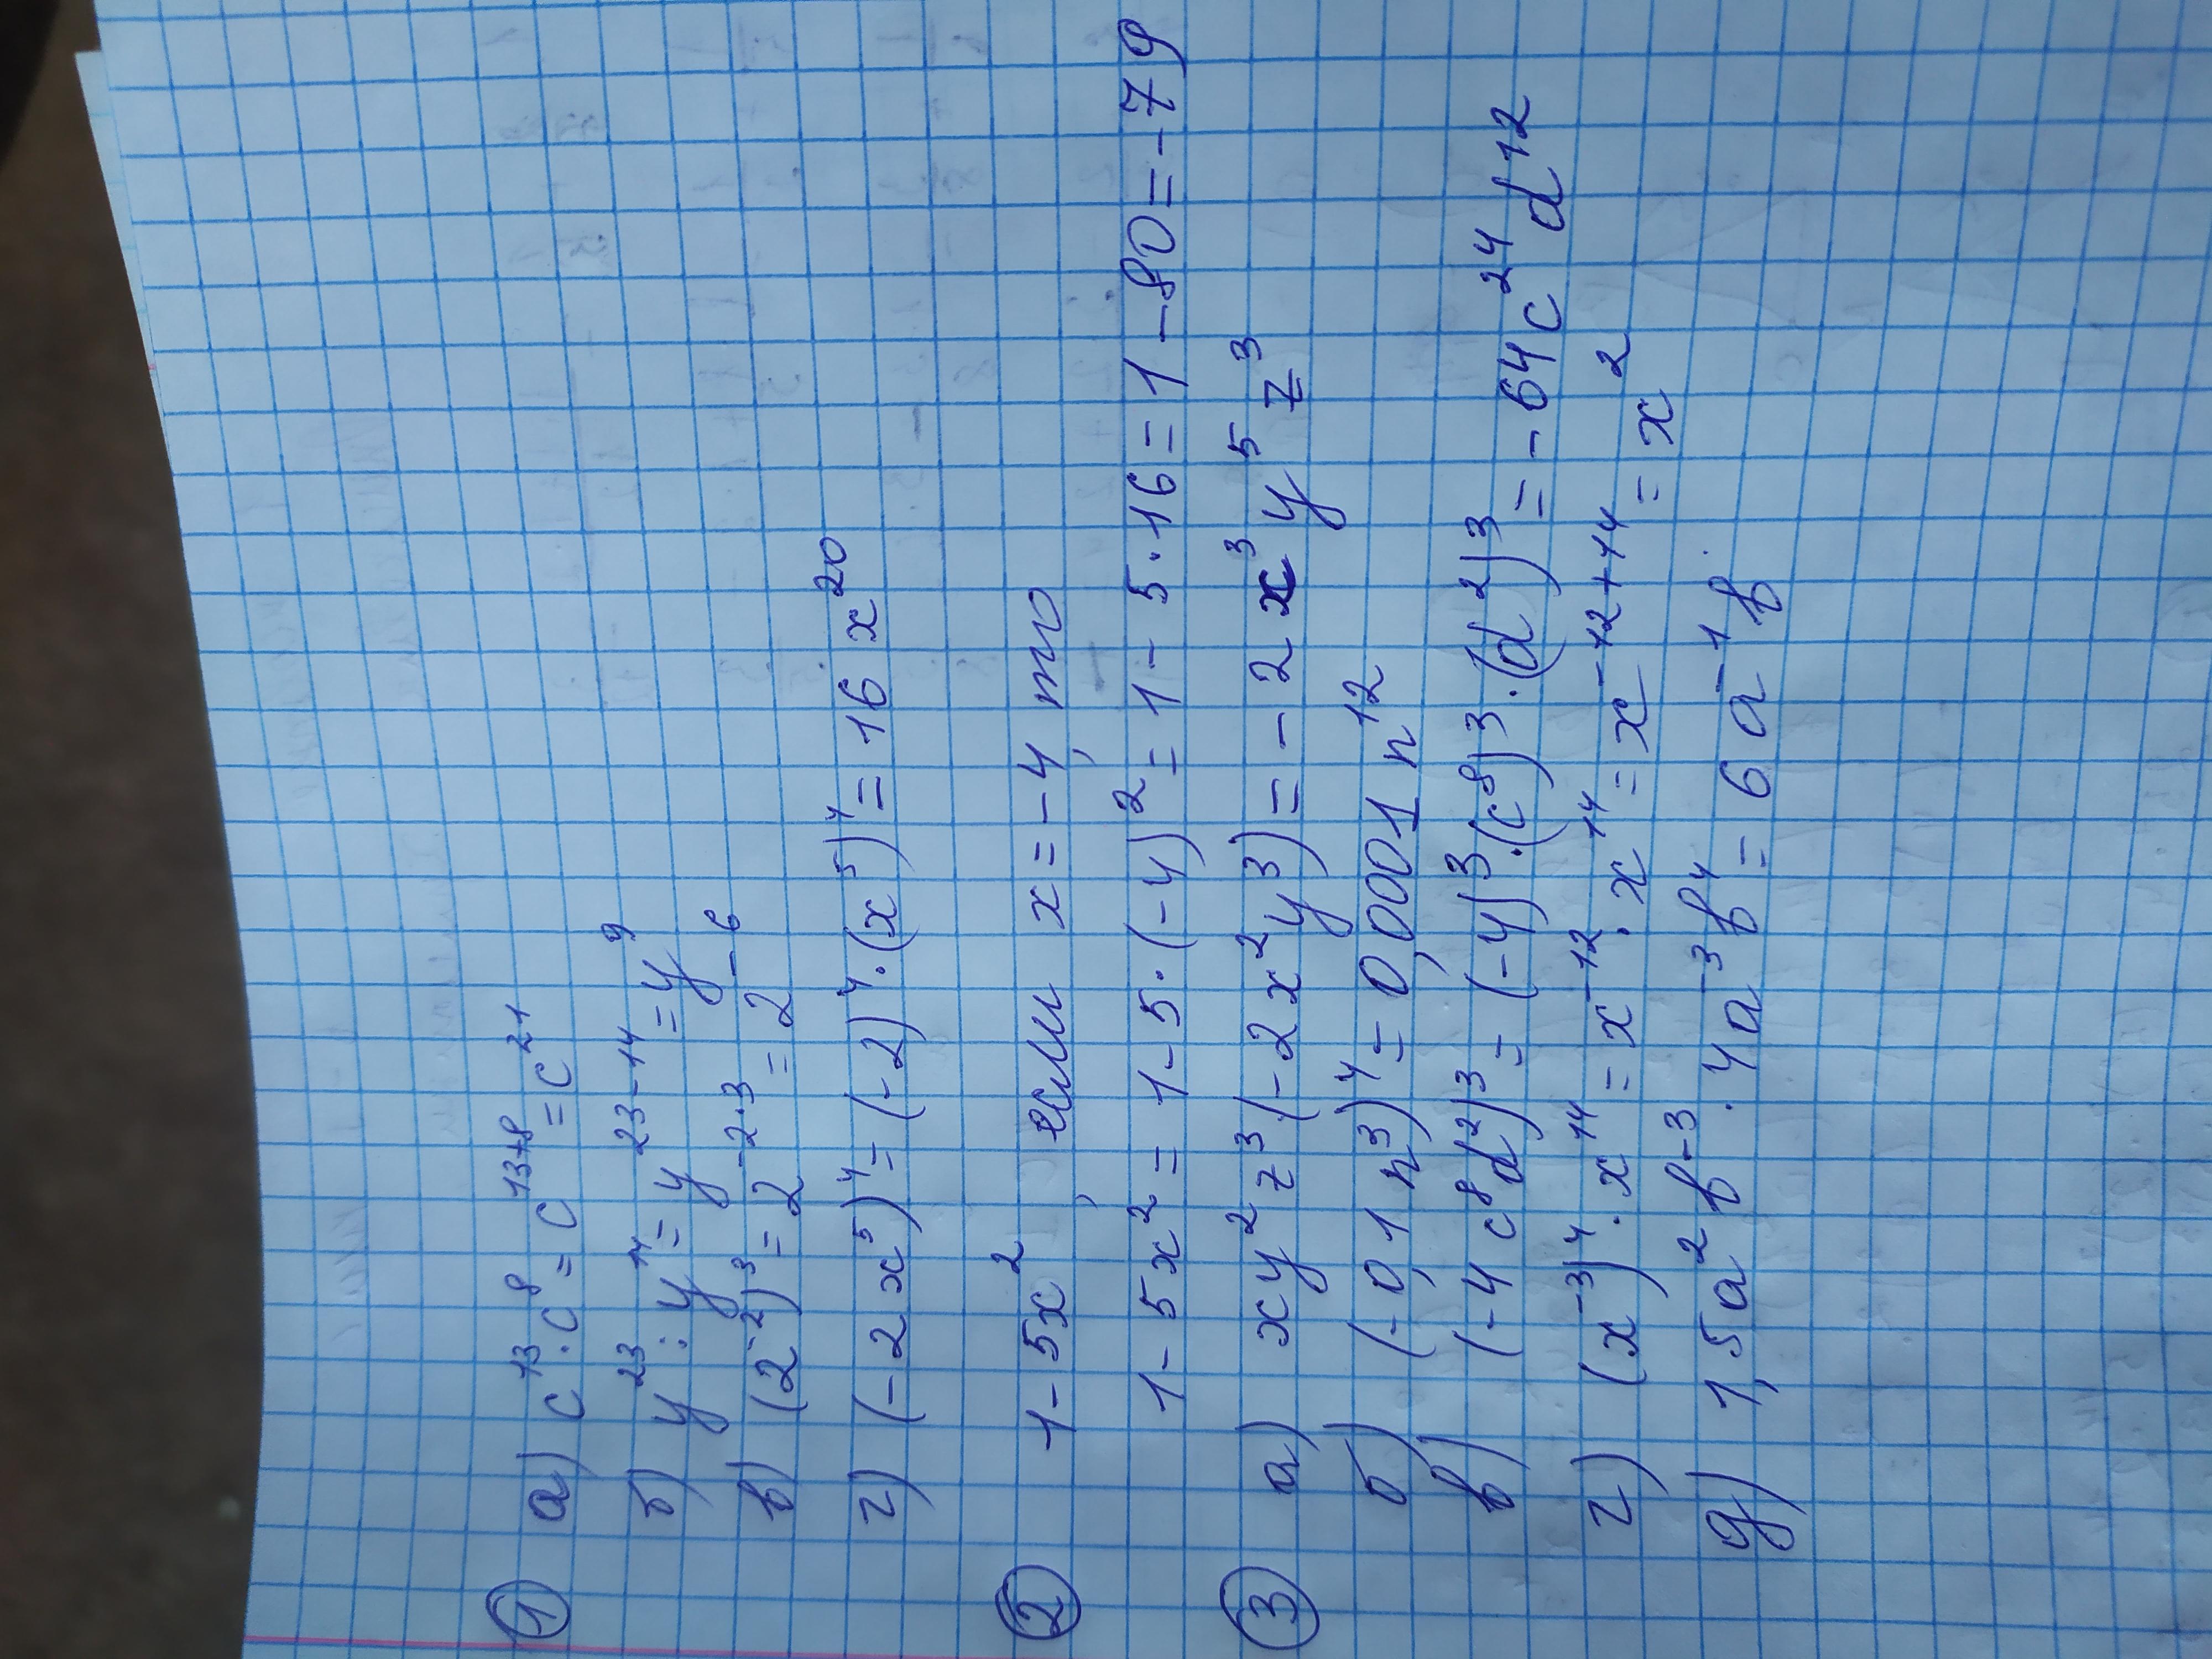 ① а) c¹³·c⁸ = c¹³⁺⁸ = c²¹
б) y²³ : y¹⁴ = y²³⁻¹⁴ = y⁹
в) (2⁻²)³ = 2⁻²·³ = 2⁻⁶
г) (-2x⁵)⁴ = (-2)⁴·(x⁵)⁴ = 16x²⁰
② 1-5x², если x = -4, то
1-5x² = 1-5·(-4)² = 1-5·16 = 1-80 = -79
③ а) xy²z³(-2x²y³) = -2x³y⁵z³
б) (-0,1n³)⁴ = 0,0001n¹²
в) (-4c⁸d²)³ = (-4)³·(c⁸)³·(d²)³ = -64c²⁴d¹²
г) (x⁻³)⁴·x¹⁴ = x⁻¹²·x¹⁴ = x⁻¹²⁺¹⁴ = x²
д) 1,5a²b⁻³·4a⁻³b⁴ = 6a⁻¹b